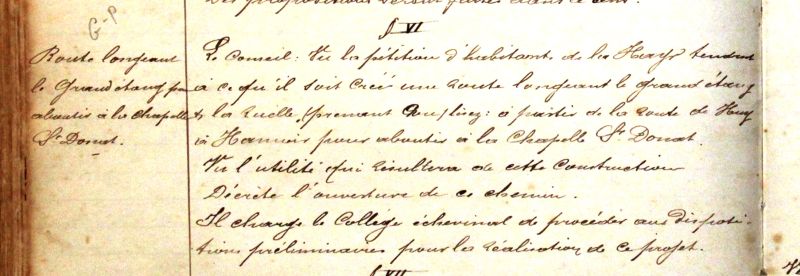 G-P
§ VI
Route longeant
le Grand étang pr
aboutir à la chapelle
St Donat.
Le Conseil: Vu la pétition d'habitants de la tendant
à ce qu'il soit créé une route longeant le grand étang
la ruelle, prenant (lisez: à partir de la route de Huy
à Hannut pour aboutir à la Chapelle St Donat.
Vu l'utilité qui résultera de cette construction
Décrète l'ouverture de ce chemin.
Il charge le Collège échevinal de procéder aux disposi-
tions préliminaires pour la réalisation de ce projet.
§ VII